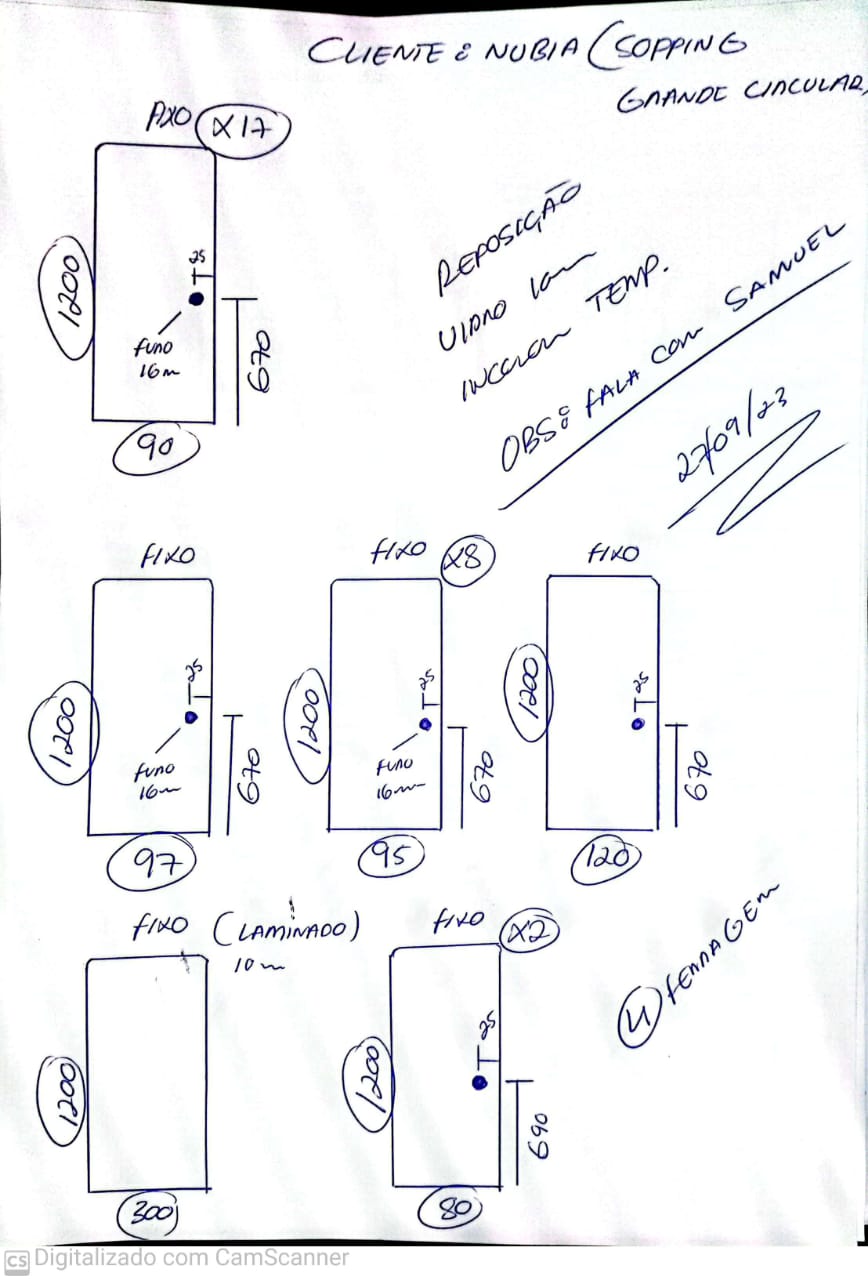 CLIENTE : NUBIA (SOPPING
GRANDE CIRCULAR)
FIXO X17
1200
25
FURO
16m
670
90
REPOSIÇÃO
VIDRO 10m
INCOLOR TEMP.
OBS: FALA COM SAMUEL
27/09/23
FIXO
1200
25
FURO
16m
670
97
FIXO X8
1200
25
FURO
16mm
670
95
FIXO
1200
25
670
120
FIXO (LAMINADO)
10m
1200
300
FIXO X2
1200
25
690
80
4 FERRAGEM
CS Digitalizado com CamScanner